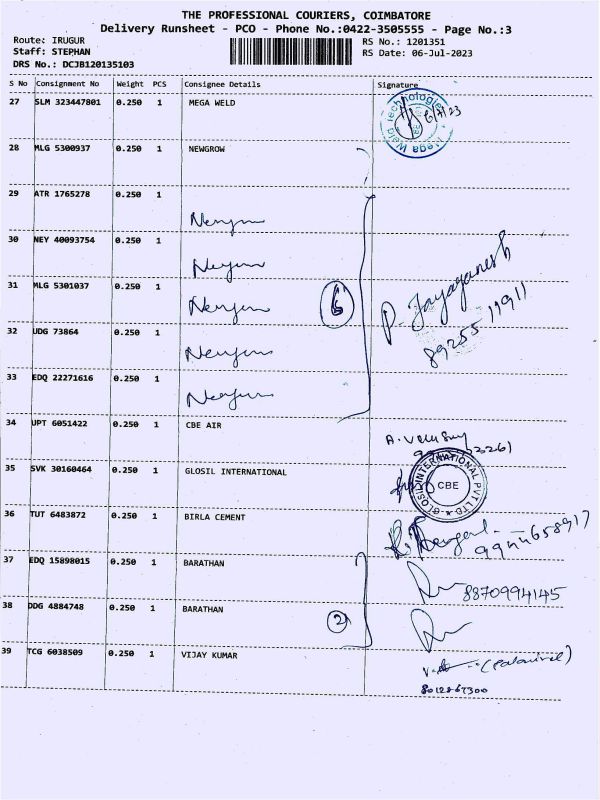 THE PROFESSIONAL COURIERS, COIMBATORE
Delivery Runsheet - PCO - Phone No.:0422-3505555 - Page No.:3
Route: IRUGUR
RS No.: 1201351
Staff: STEPHAN
RS Date: 06-Jul-2023
DRS No.: DCJB120135103
S No Consignment No Weight PCS Consignee Details Signature
27 SLM 323447801 0.250 1 MEGA WELD
Mega Weld Technologies
28 MLG 5300937 0.250 1 NEWGROW
29 ATR 1765278 0.250 1
30 NEY 40093754 0.250 1
31 MLG 5301037 0.250 1
6
P. Jayaganesh
89255 11911
32 UDG 73864 0.250 1
33 EDQ 22271616 0.250 1
34 UPT 6051422 0.250 1 CBE AIR
35 SVK 30160464 0.250 1 GLOSIL INTERNATIONAL
GLOSIL INTERNATIONAL PVT LTD
CBE
36 TUT 6483872 0.250 1 BIRLA CEMENT
37 EDQ 15898015 0.250 1 BARATHAN
8870994145
38 DDG 4884748 0.250 1 BARATHAN
2
39 TCG 6038509 0.250 1 VIJAY KUMAR